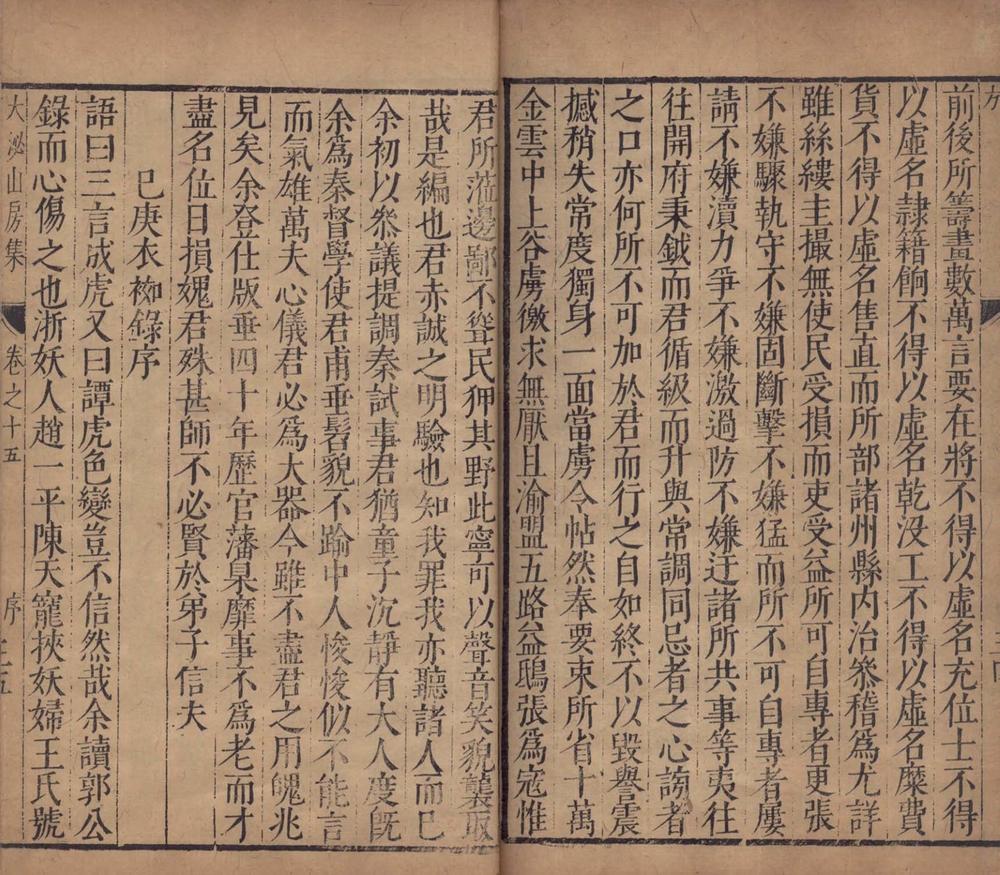 前後所籌畫數萬言要在將不得以虛名充位士不得
以虛名隸籍餉不得以虛名乾没工不得以虛名糜費
貨不得以虛名售直而所部諸州縣内治叅稽為尤詳
雖絲縷圭撮無使民受損而吏受益所可自專者更張
不嫌驟執守不嫌固斷擊不嫌猛而所不可自專者屢
請不嫌瀆力爭不嫌激過防不嫌迂諸所共事等夷往
往開府秉鉞而君循級而升與常調同忌者之心謗者
之口亦何所不可加於君而行之自如終不以毀譽震
撼稍失常度獨身一面當虜令帖然奉要束所省十萬
金雲中上谷虜徼求無厭且渝盟五路益鴟張為寇惟
君所蒞邊鄙不聳民狎其野此寧可以聲音笑貌襲取
哉是編也君赤誠之明驗也知我罪我亦聽諸人而已
余初以叅議提調秦試事君猶童子沉靜有大人度旣
余爲秦督學使君甫垂髫貌不踰中人悛悛似不能言
而氣雄萬夫心儀君必爲大器今雖不盡君之用魄兆
見矣余登仕版垂四十年歷官藩臬靡事不爲老而才
盡名位日損媿君殊甚師不必賢於弟子信夫
巳庚衣袽錄序
語曰三言成虎又曰譚虎色變豈不信然哉余讀郭公
錄而心傷之也浙妖人趙一平陳天寵挾妖婦王氏號
大泌山房集 卷之十五 序